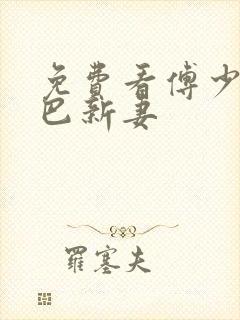 免費看傅少
巴新妻
羅塞夫